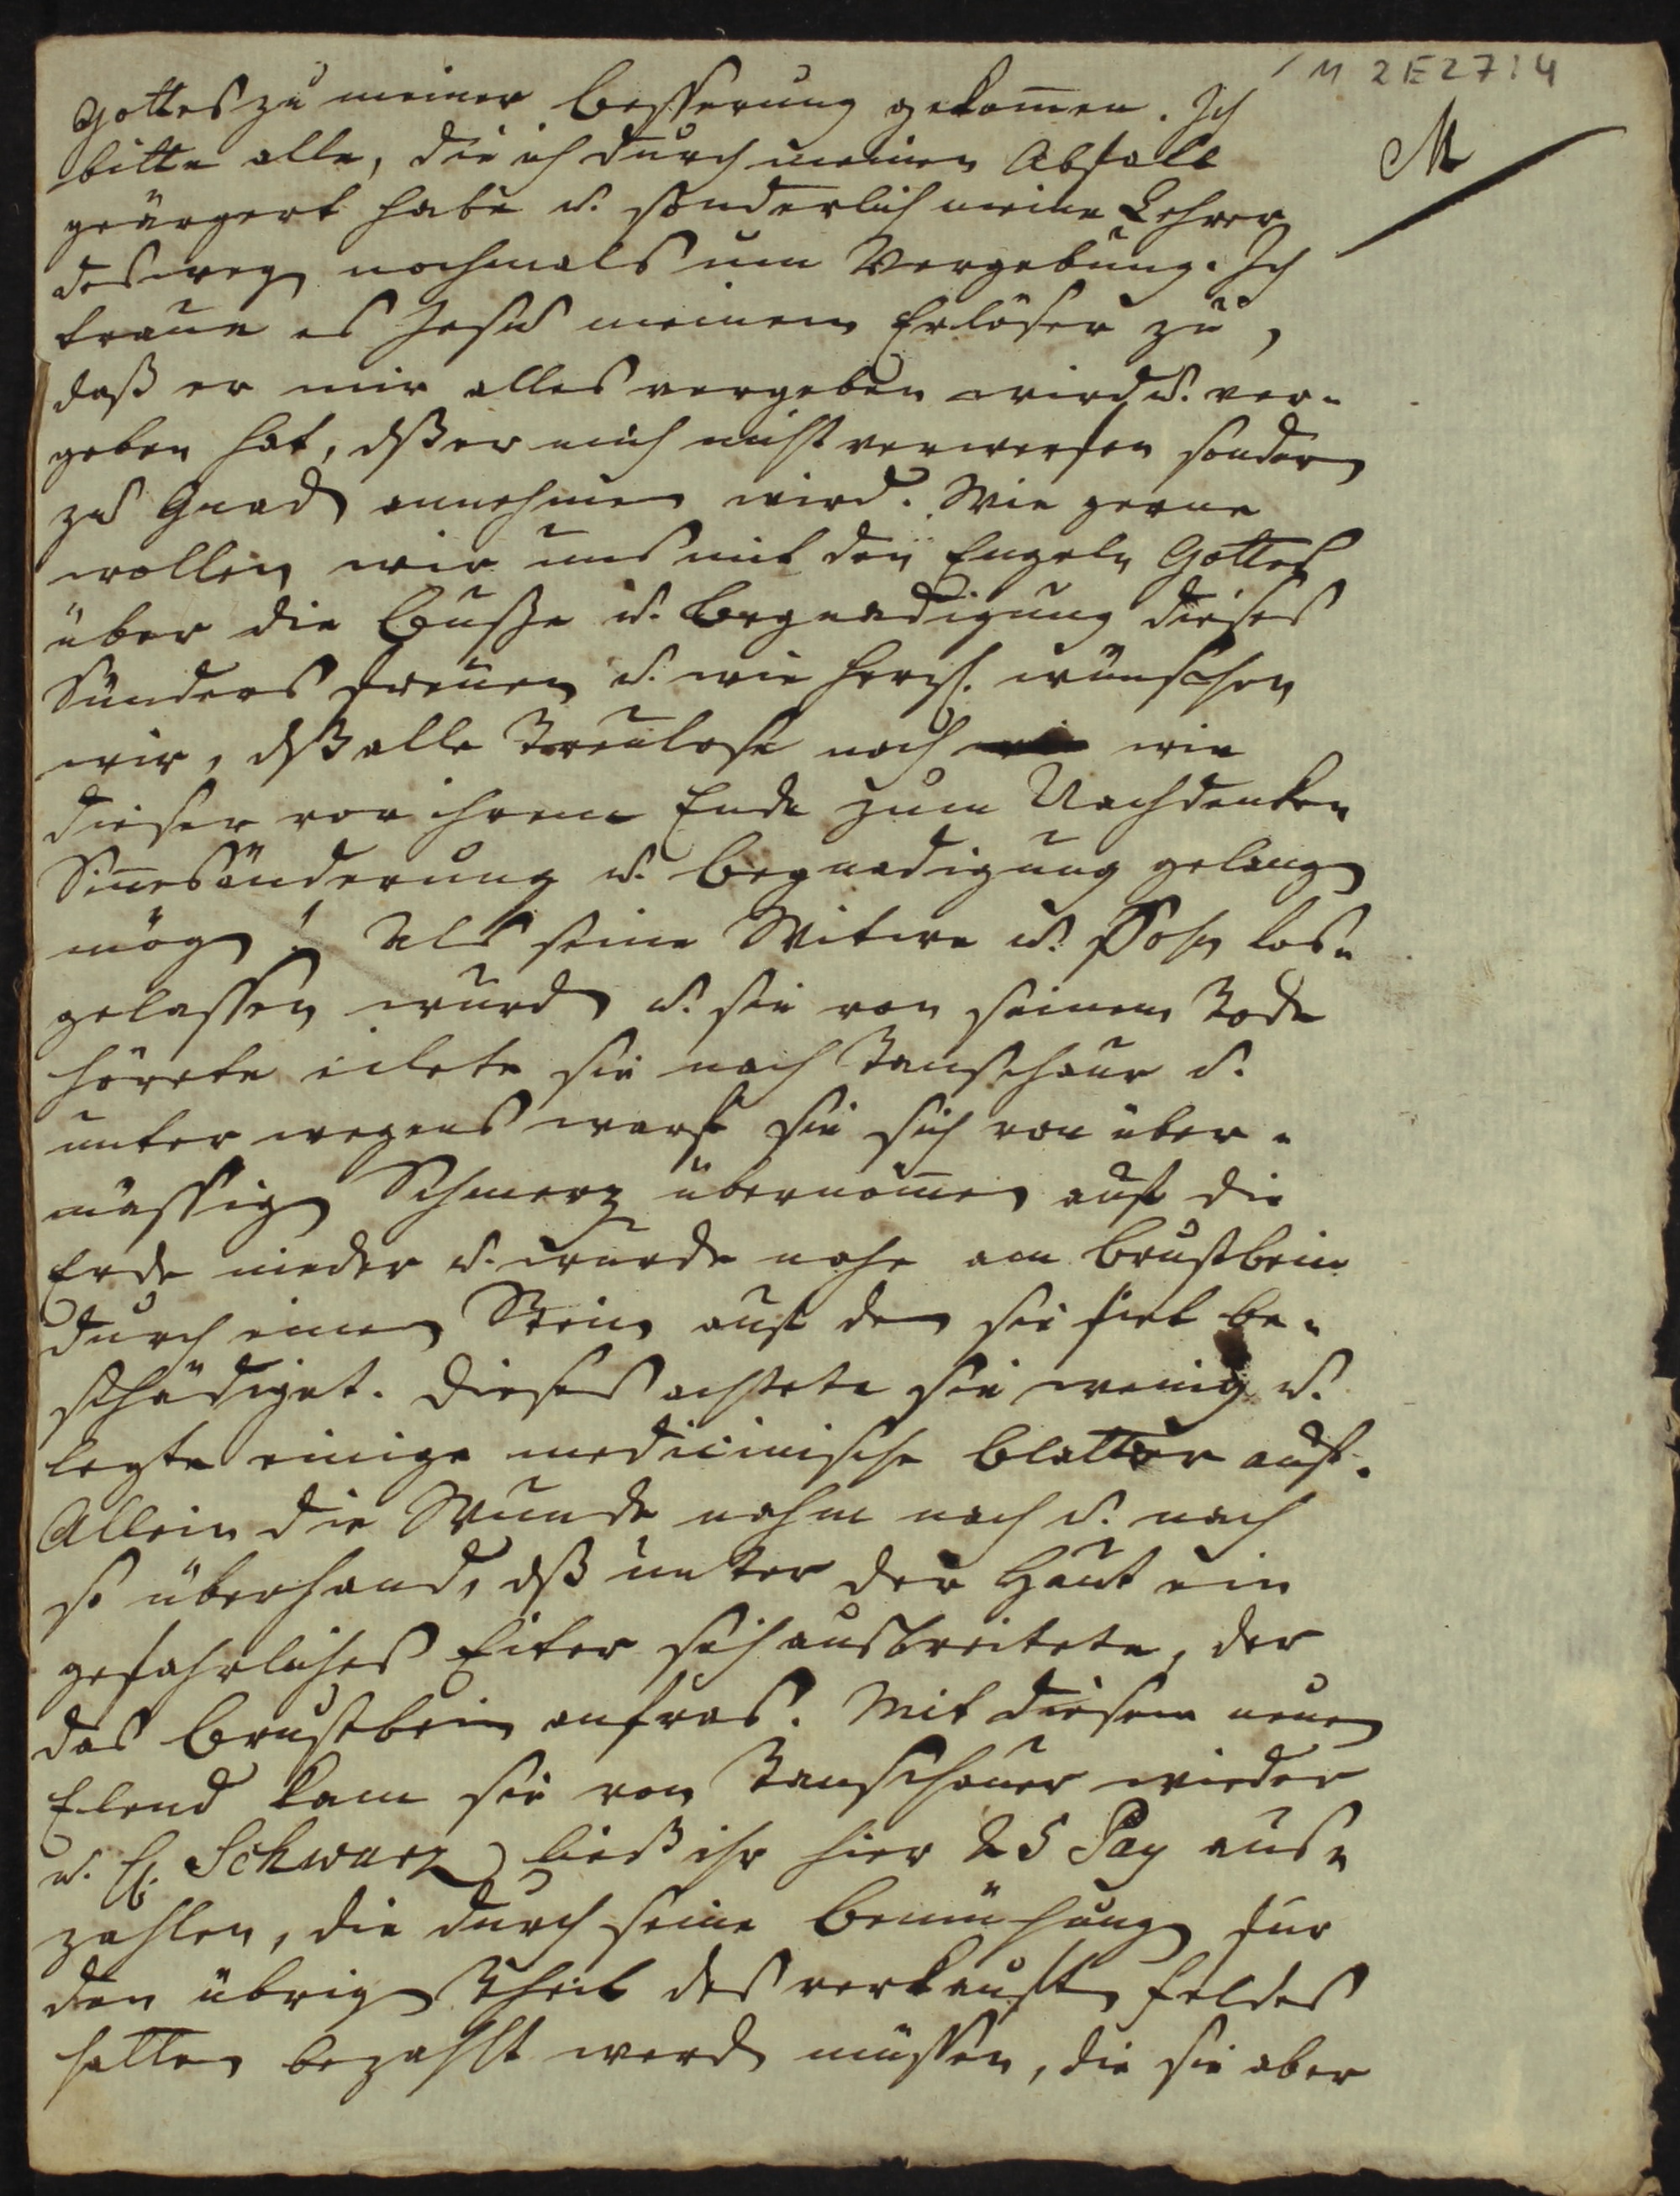 M 2E27:4
M
Gottes zu meiner Besserung gekom̄en. Ich
bitte alle, die ich durch meinen Abfall
geärgert habe u. sonderlich meine Lehrer
deswegen nochmals um Vergebung. Ich
traue es Jesu meinem Erlöser zu,
daß er mir alles vergeben wird u. ver-
geben hat, dß er mich nicht verwerfen sondern
zu Gnaden annehmen wird. Wie gerne
wollen wir uns mit den Engeln Gottes
über die Buße u. Begnadigung dieses
Sünders freuen u. wie herzl. wünschen
wir, dß alle Treulose noch wie
dieser vor ihrem Ende zum Nachdenken
Sin̄esänderung u. Begnadigung gelangen
mögen! Als seine Witwe u. Sohn los-
gelassen wurden u. sie von seinem Tode
hörete eilete sie nach Tanschaur u.
unter wegens warf sie sich von über-
mässigen Schmerz übernom̄en auf die
Erde nieder u. wurde nahe am Brustbein
durch einen Stein auf den sie fiel be-
schädiget. Dieses achtete sie wenig u.
legte einige medicinische Blatter auf.
Allein die Wunde nahm nach u. nach
so überhand, dß unter der Haut ein
gefahrliches Eiter sich ausbreitete, der
das Brustbein anfras. Mit diesem neuen
Elend kam sie von Tanschaur wieder
u. H. Schwarz ließ ihr hier 25 Pag aus-
zahlen, die durch seine Bemühung fur
den übrigen Theil des verkauften Feldes
hatten bezahlt werden müssen, die sie aber